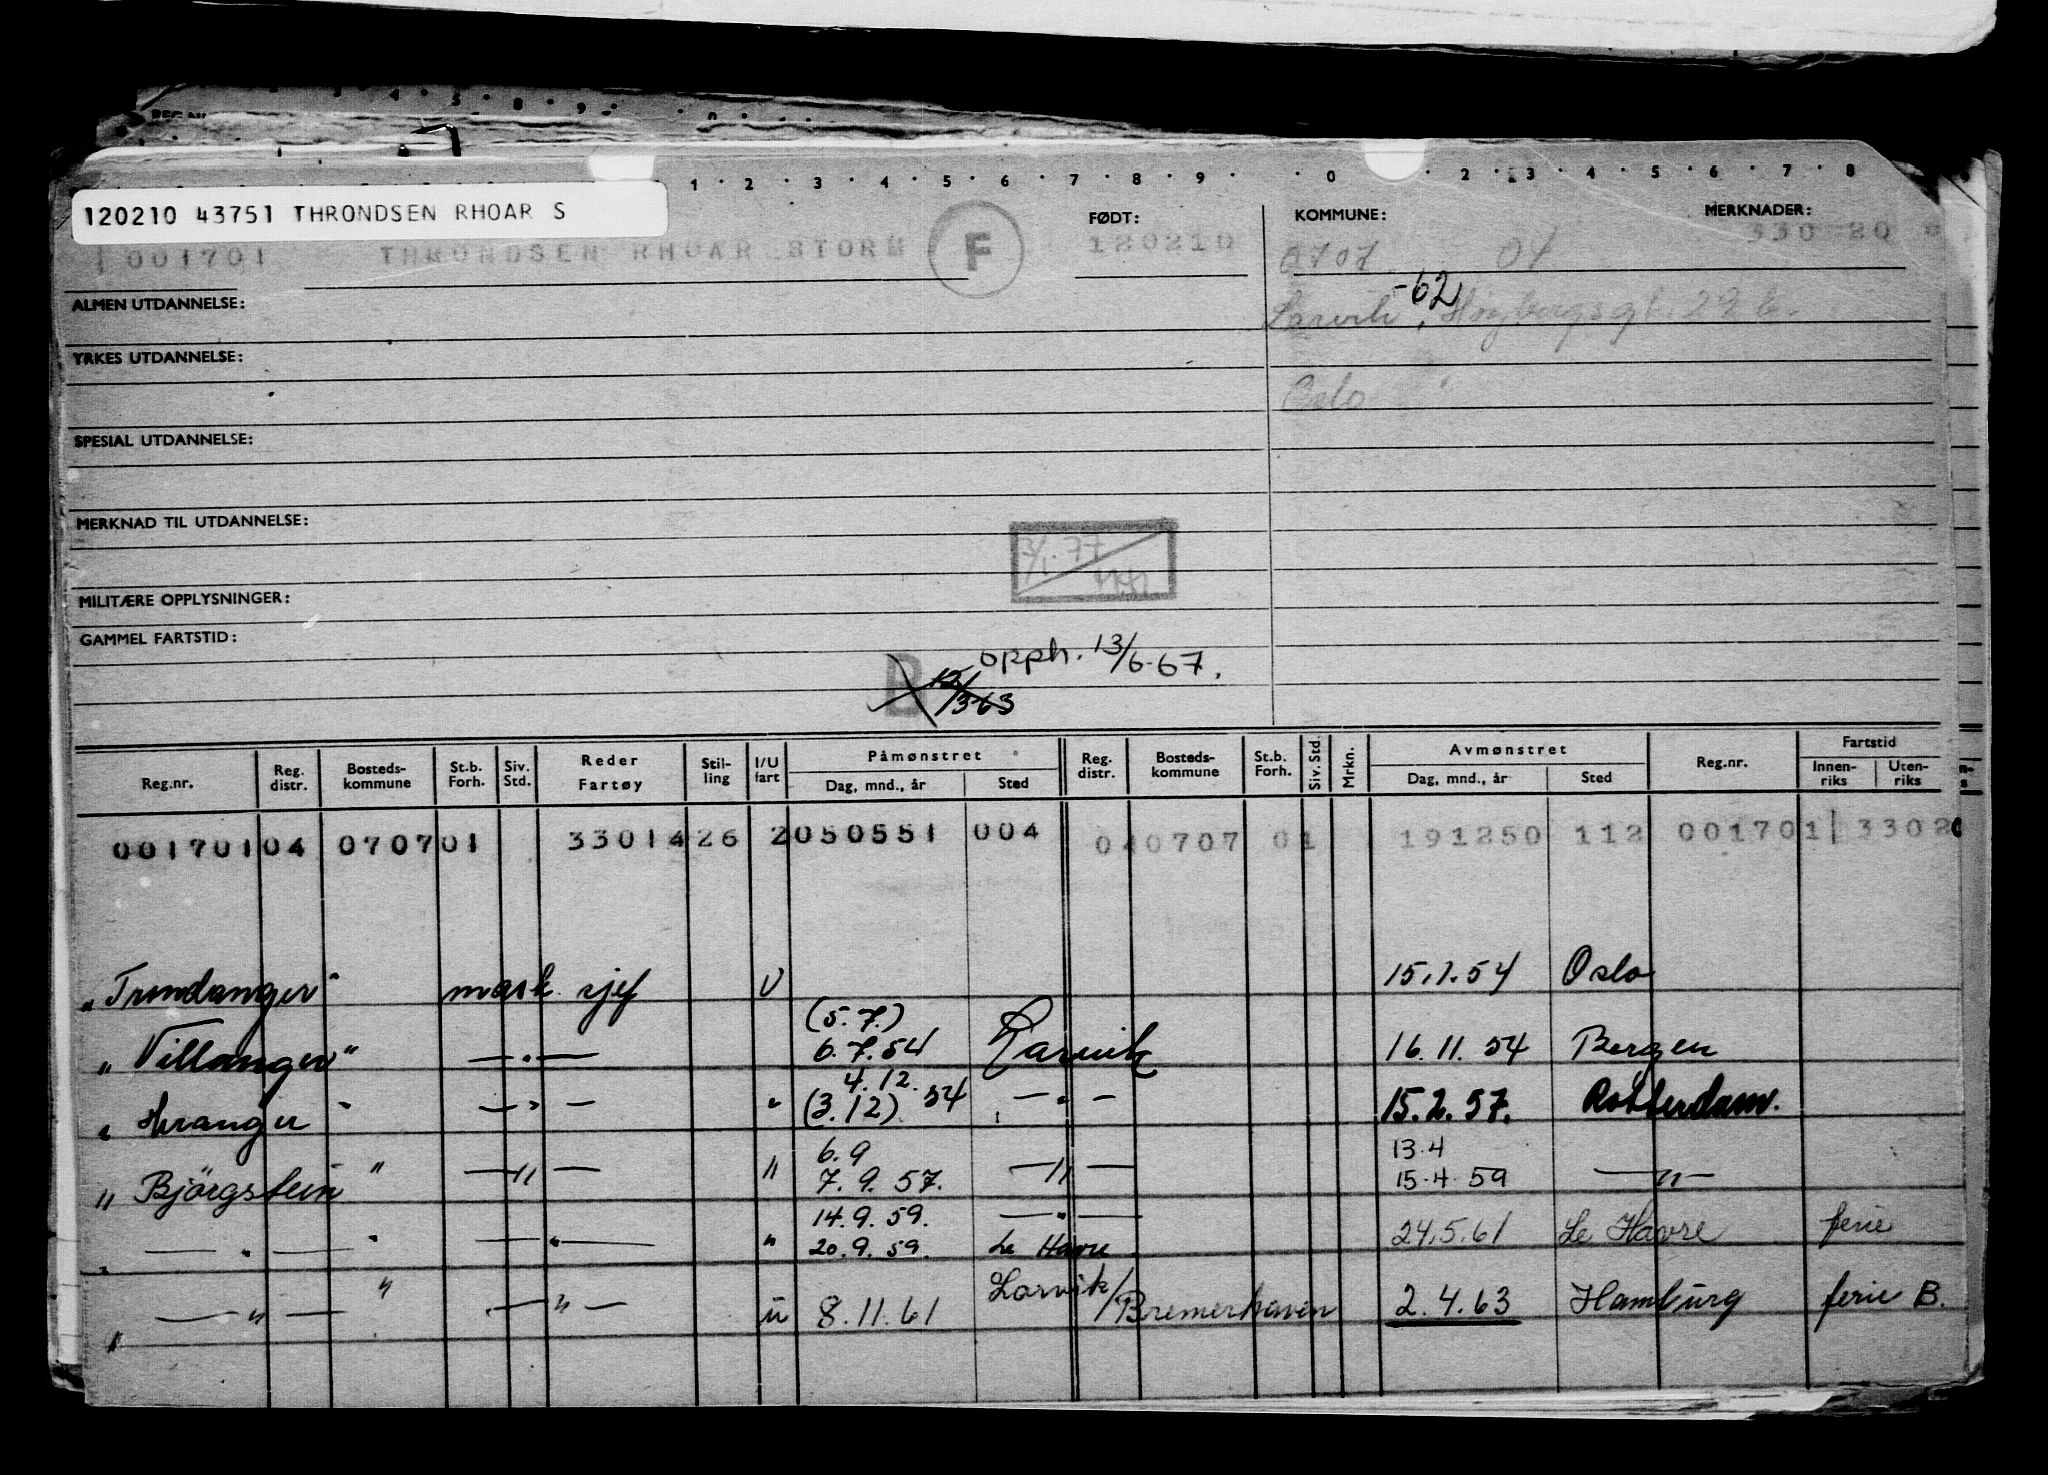 120210 43751 THRONDSEN RHOAR S
FØDT: KOMMUNE: MERKNADER:
001701 THRONDSEN RHOAR STORM F 120210 0707 04 330 20
ALMEN UTDANNELSE: -62
Larvik, 29 b.
YRKES UTDANNELSE:
Oslo
SPESIAL UTDANNELSE:
MERKNAD TIL UTDANNELSE:
3/1.77
MILITÆRE OPPLYSNINGER:
GAMMEL FARTSTID:
opph. 13/6-67.
B 12/3-63
Reg.nr. Reg. distr. Bosteds-kommune St.b. Forh. Siv. Std. Reder Fartøy Stil-ling I/U fart Påmønstret Dag, mnd., år Sted Reg. distr. Bosteds-kommune St.b. Forh. Siv. Std. Mrkn. Avmønstret Dag, mnd., år Sted Reg.nr. Fartstid Innen-riks Uten-riks
001701 04 0707 01 3301426 2 050551 004 040707 01 191250 112 001701 3302
"Trondanger" mask sjef U 15.1.54 Oslo
(5.7.)
"Villanger" — " — 6.7.54 Larvik 16.11.54 Bergen
4.12.
" Hranger " — " — " (3.12) 54 — " — 15.2.57. Rotterdam.
6.9 13.4
" Björgstein " — " — " 7.9.57. — " — 15.4.59 — " —
14.9.59. — " —
" — " — " — " — " 20.9.59. Le Havre 24.5.61 Le Havre ferie
" — " — " — " — u 8.11.61 Larvik/Bremerhaven 2.4.63 Hamburg ferie B.